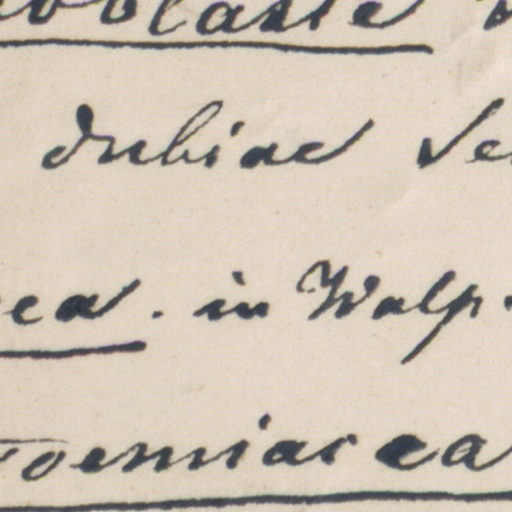 oblaste
dubiae se
ea. in Walp.
oemiacea